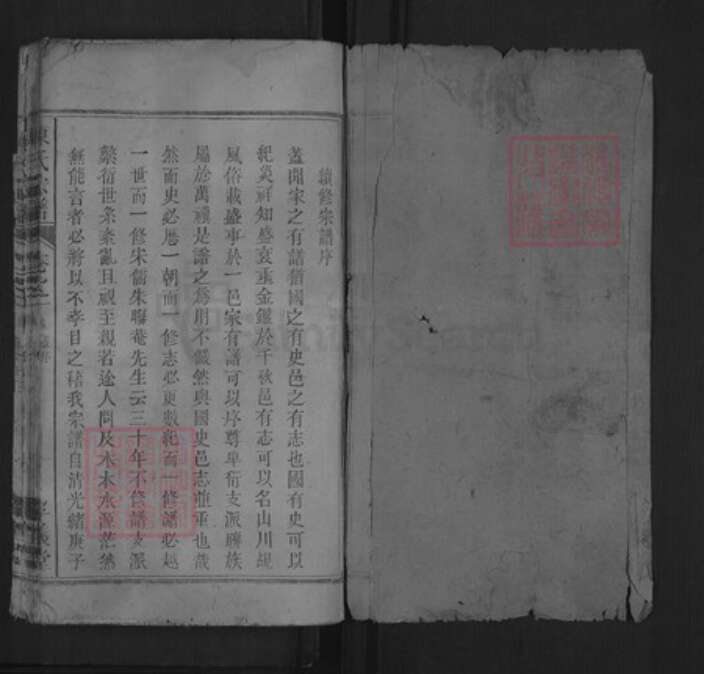 續修宗譜序
蓋聞家之有譜猶國之有史邑之有志也國有史可以
紀災祥知盛衰垂金鑑於千秋邑有志可以名山川觀
風俗載盛事於一邑家有譜可以序尊卑衍支派聯族
屬於萬禩是譜之為用不儼然與國史邑志並重也哉
然而史必歷一朝而一修志必更數紀而一修譜必越
一世而一修宋儒朱晦菴先生云三十年不修譜支派
繁衍世系紊亂且視至親若途人問及木本水源茫然
無能言者必將以不孝目之稽我宗譜自清光緒庚子
陳氏宗譜